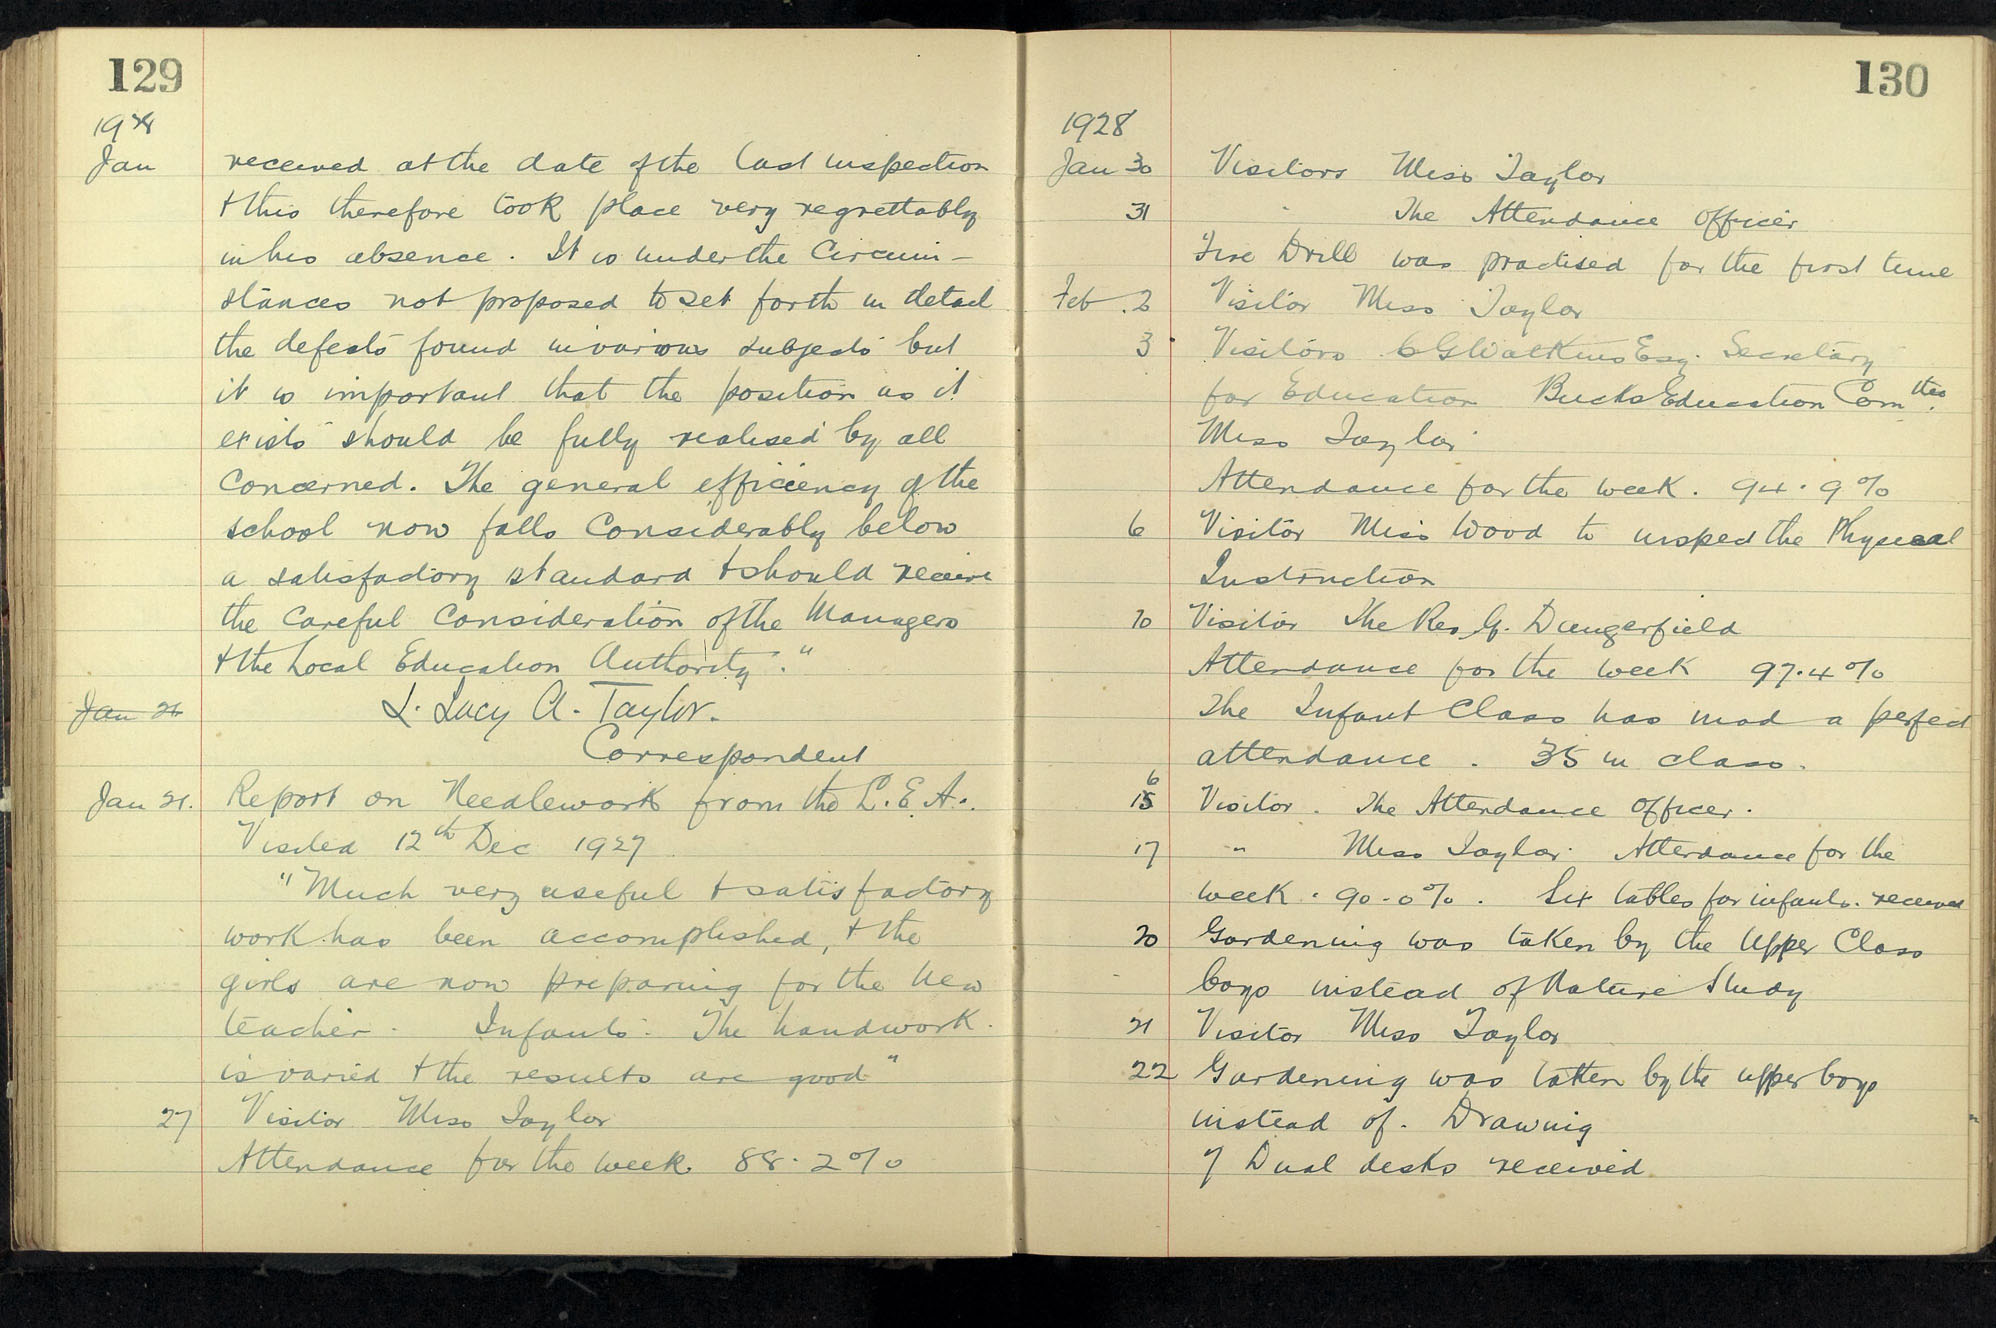 129
1928
Jan received at the date of the last inspection
& this therefore took place very regrettably
in his absence. It is under the Circum-
stances not proposed to set forth in detail
the defects found in various subjects but
it is important that the position as it
exists should be fully realised by all
Concerned. The general efficiency of the
school now falls Considerably below
a satisfactory standard & should receive
the Careful Consideration of the Managers
& the Local Education Authority."
Jan 21 L. Lucy A. Taylor.
Correspondent
Jan 21. Report on Needlework from the L.E.A.
Visited 12th Dec 1927
"Much very useful & satisfactory
work has been accomplished, & the
girls are now preparing for the new
teacher. Infants. The handwork.
is varied & the results are good"
27 Visitor Miss Taylor
Attendance for the week. 88.2%
130
1928
Jan 30 Visitors Miss Taylor
31 " The Attendance Officer
Fire Drill was practised for the first time
Feb. 2 Visitor Miss Taylor
3 Visitors C G Watkins Esq. Secretary
for Education Bucks Education Com ttee.
Miss Taylor
Attendance for the week. 94.9%
6 Visitor Miss Wood to inspect the Physical
Instruction
10 Visitor The Rev G. Dangerfield
Attendance for the week 97.4%
The Infant Class has mad a perfect
attendance. 35 in class.
16 Visitor. The Attendance Officer.
17 " Miss Taylor. Attendance for the
week. 90.0%. Six tables for infants. received
20 Gardening was taken by the Upper Class
boys instead of Nature Study
21 Visitor Miss Taylor
22 Gardening was taken by the upper boys
instead of. Drawing
7 Dual desks received